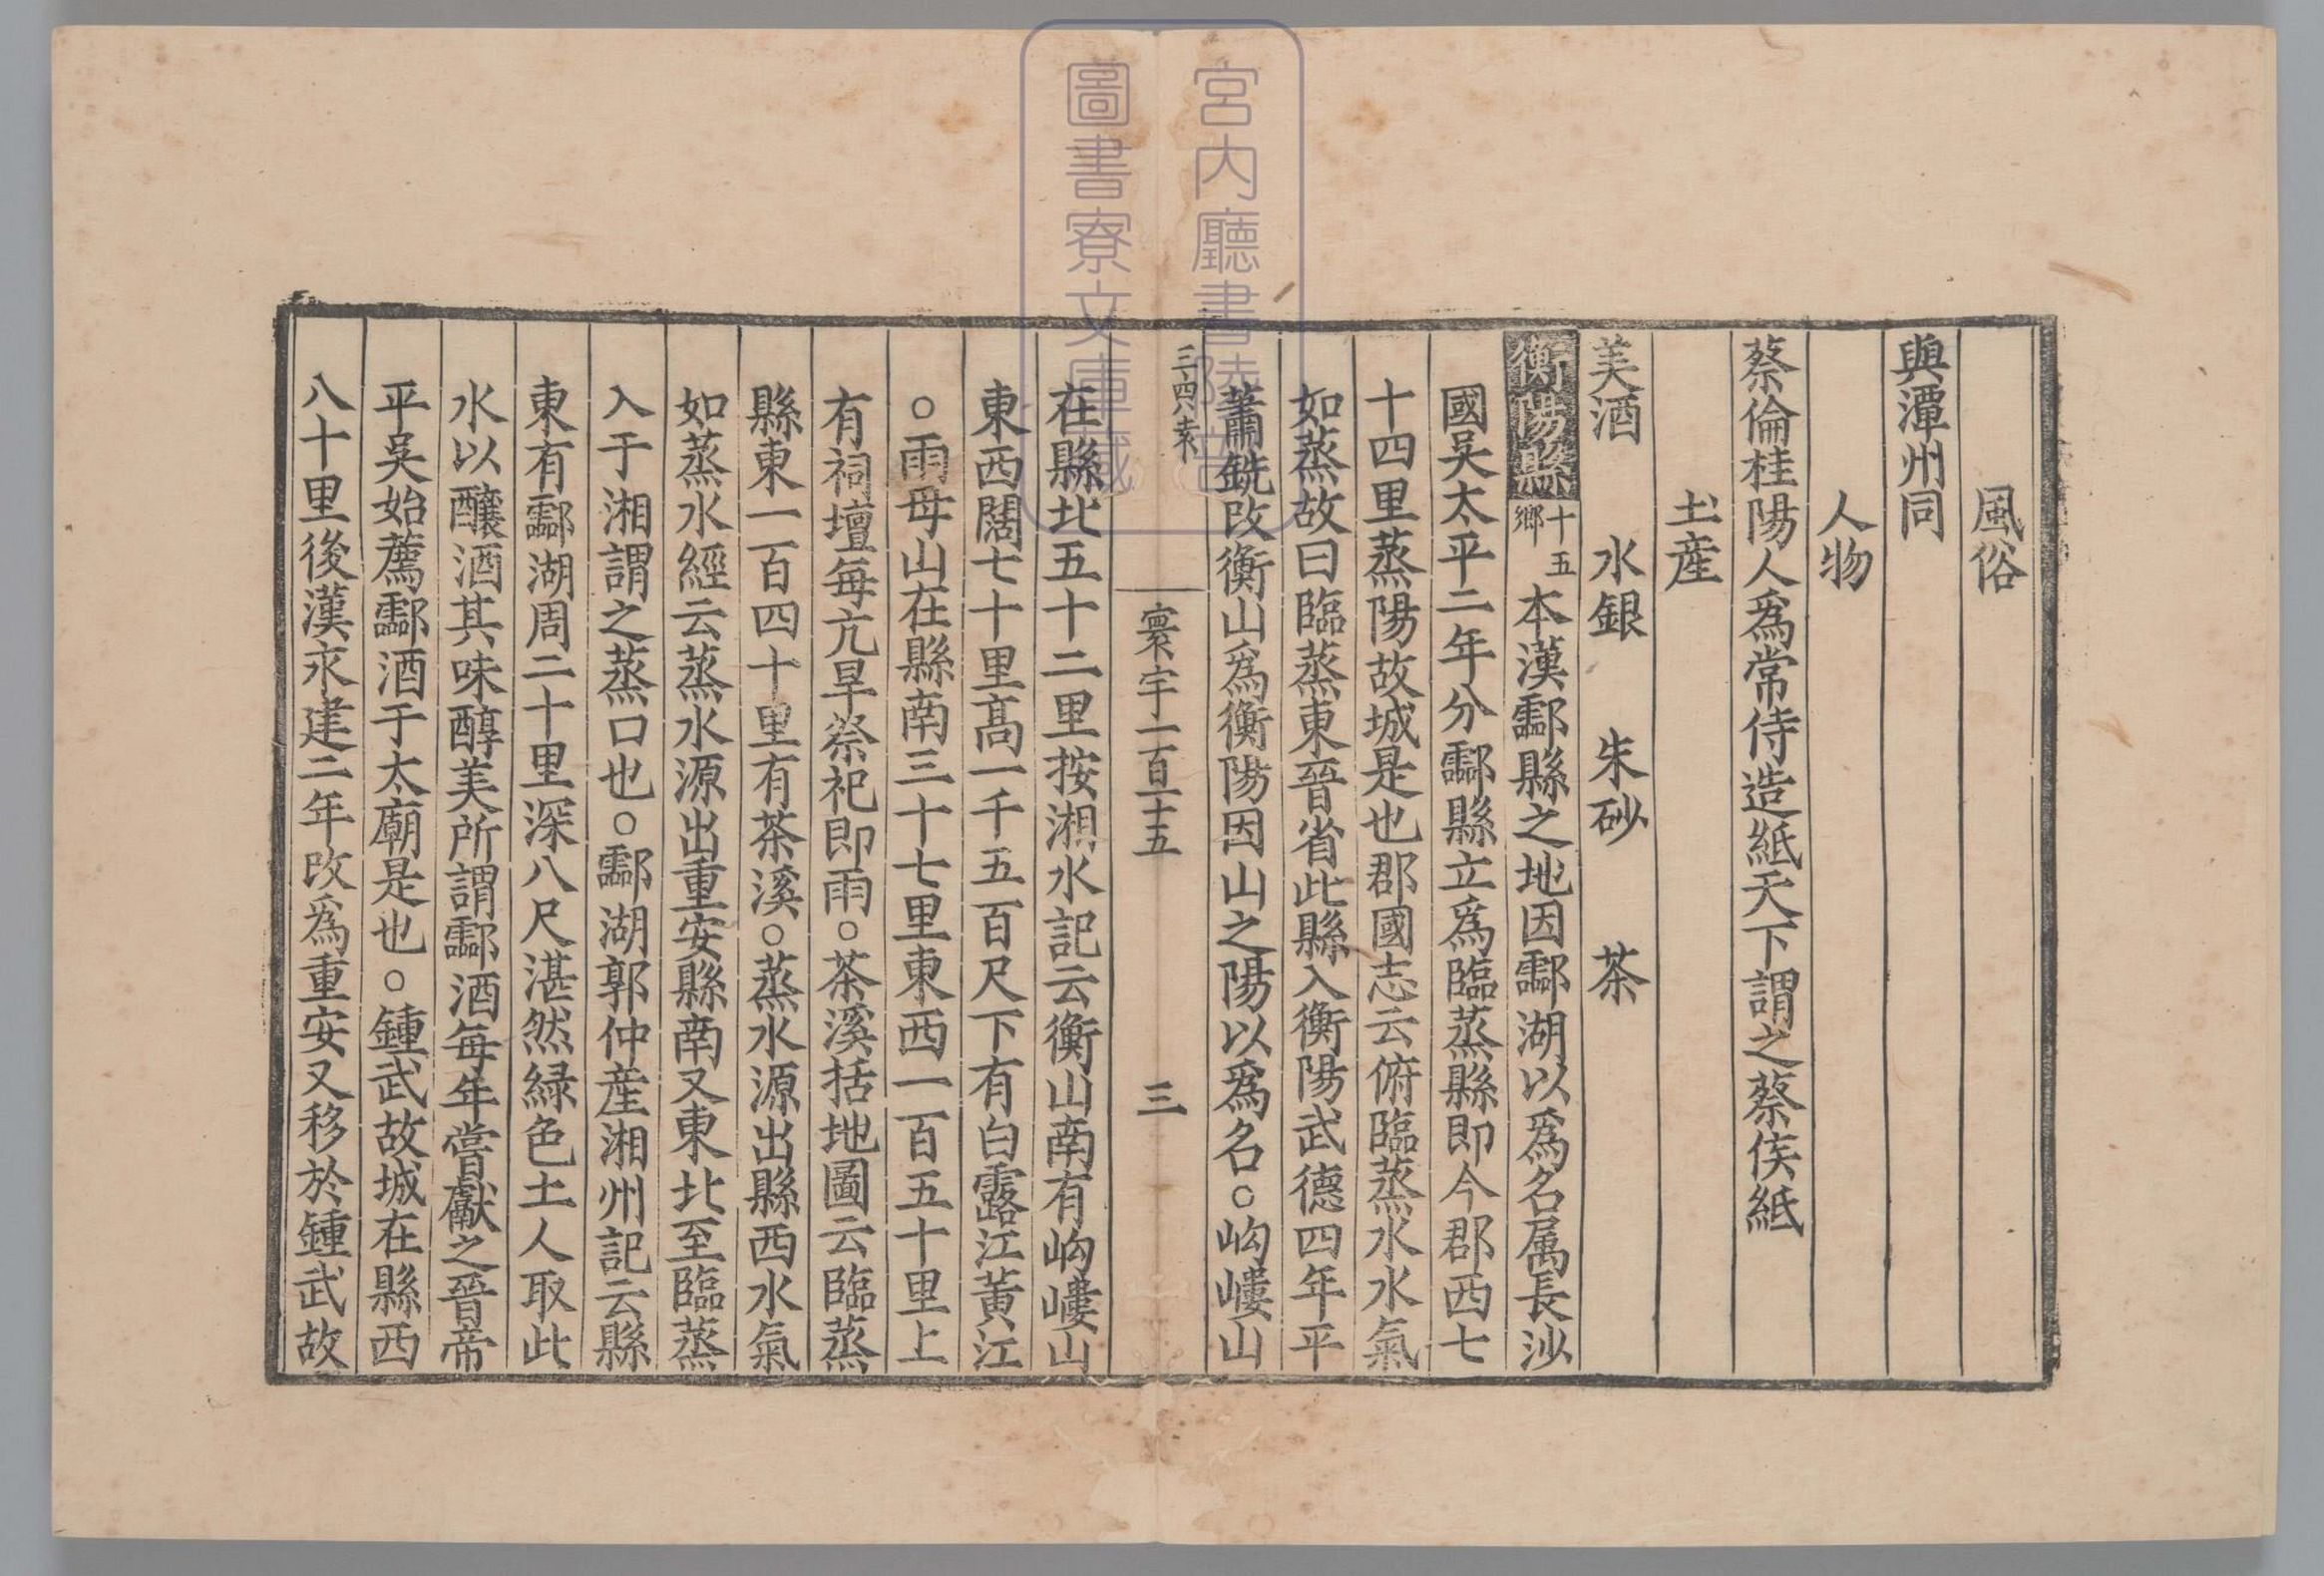 風俗
與潭州同
人物
蔡倫桂陽人爲常侍造紙天下謂之蔡侯紙
土産
美酒 水銀 朱砂 茶
衡陽縣十五鄉本漢酃縣之地因酃湖以爲名属長沙
國吳太平二年分酃縣立爲臨蒸縣即今郡西七
十四里蒸陽故城是也郡國志云俯臨蒸水水氣
如蒸故曰臨蒸東晉省此縣入衡陽武德四年平
蕭銑改衡山爲衡陽因山之陽以爲名○岣嶁山
寰宇一百一十五 三
在縣北五十二里按湘水記云衡山南有岣嶁山
東西闊七十里高一千五百尺下有白露江黃江
○雨母山在縣南三十七里東西一百五十里上
有祠壇每亢旱祭祀即雨○茶溪括地圖云臨蒸
縣東一百四十里有茶溪○蒸水源出縣西水氣
如蒸水經云蒸水源出重安縣南又東北至臨蒸
入于湘謂之蒸口也○酃湖郭仲産湘州記云縣
東有酃湖周二十里深八尺湛然緑色土人取此
水以釀酒其味醇美所謂酃酒每年嘗獻之晉帝
平吳始薦酃酒于太廟是也○鍾武故城在縣西
八十里後漢永建二年改爲重安又移於鍾武故
宮内廳書陵部
圖書寮文庫蔵